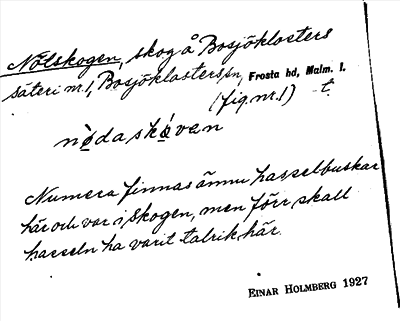 Nötskogen, skog å Bosjöklosters
säteri nr. 1, Bosjöklosters sn, Frosta hd, Malm. l.
(fig. nr. 1) t.
nødaskøven
Numera finnas ännu hasselbuskar
här och var i skogen, men förr skall
hasseln ha varit talrik här.
EINAR HOLMBERG 1927